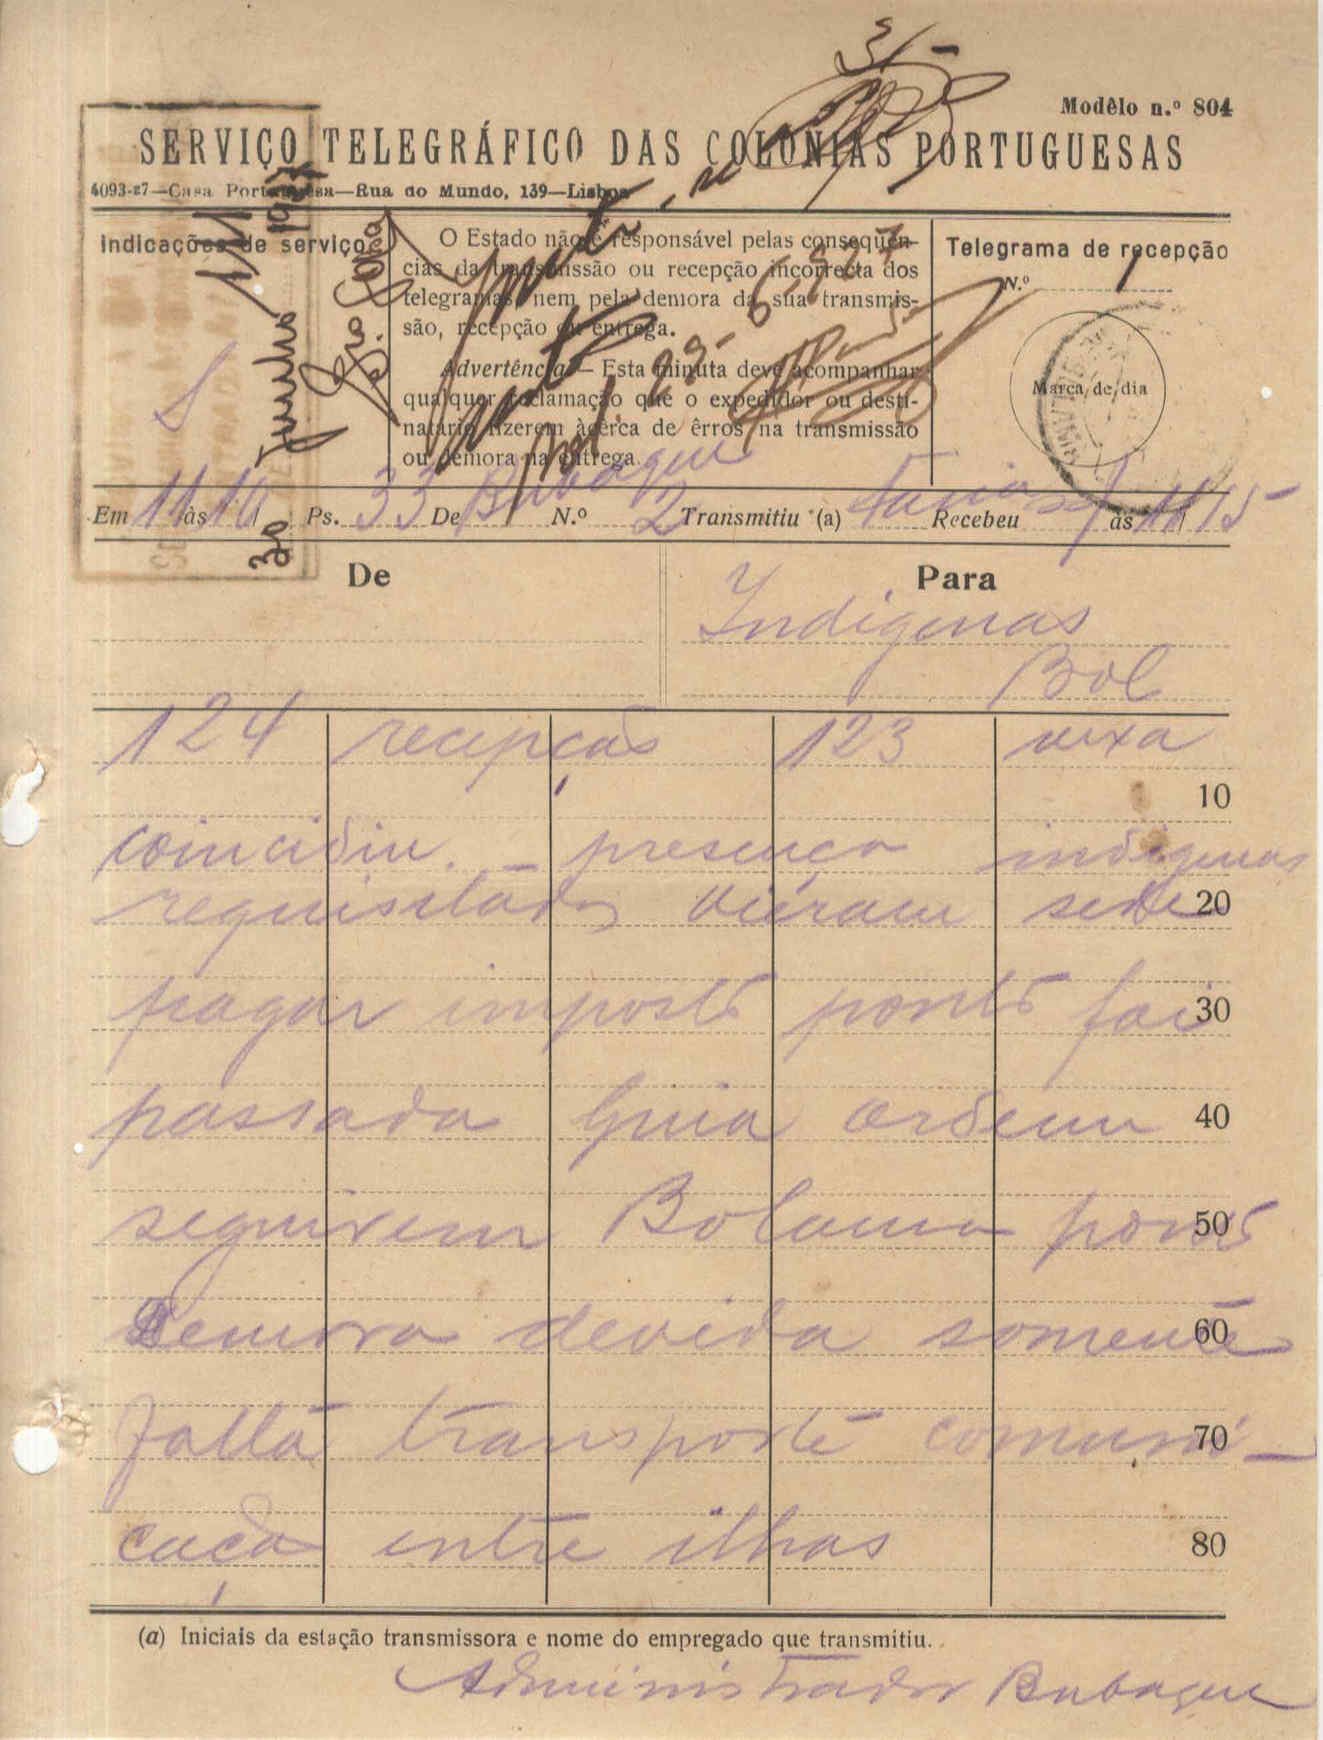 31-
Modêlo n.º 804
SERVIÇO TELEGRÁFICO DAS COLÓNIAS PORTUGUESAS
4093-27—Casa Portuguesa—Rua do Mundo, 139—Lisboa
Indicações de serviço
O Estado não é responsável pelas conseqüên-
cias da transmissão ou recepção incorrecta dos
telegramas, nem pela demora da sua transmis-
são, recepção ou entrega.
Advertência — Esta minuta deve acompanhar
qualquer reclamação que o expedidor ou desti-
natário fizerem àcêrca de êrros na transmissão
ou demora na entrega.
Telegrama de recepção
N.º 1
Marca de dia
30 Junho 1927
Em 11 às 10 Ps. 33 De Bubaque N.º 2 Transmitiu (a) Recebeu às 11/15
De
Para
Indigenas
Bol
124 recepção 123 vexa
10
coincidiu. - presença indigenas
requisitados viéram sede 20
pagar imposto ponto foi 30
passada Guia ordem 40
seguirem Bolama ponto 50
Demora devida somente 60
falta transporte comuni- 70
cação entre ilhas 80
(a) Iniciais da estação transmissora e nome do empregado que transmitiu.
Administrador Bubaque